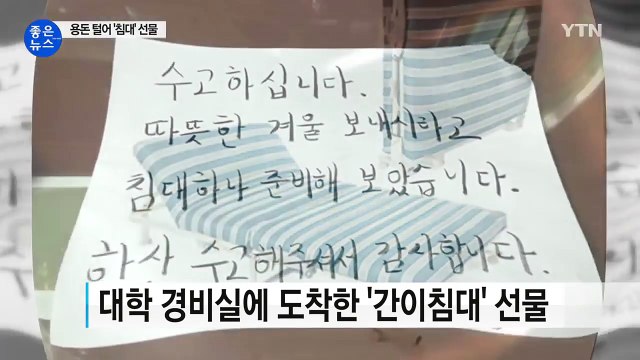 좋은
뉴스
용돈 털어 '침대' 선물
YTN
수고하십니다.
따뜻한 겨울 보내시라고
침대하나 준비해 보았습니다.
항상 수고해주셔서 감사합니다.
대학 경비실에 도착한 '간이침대' 선물